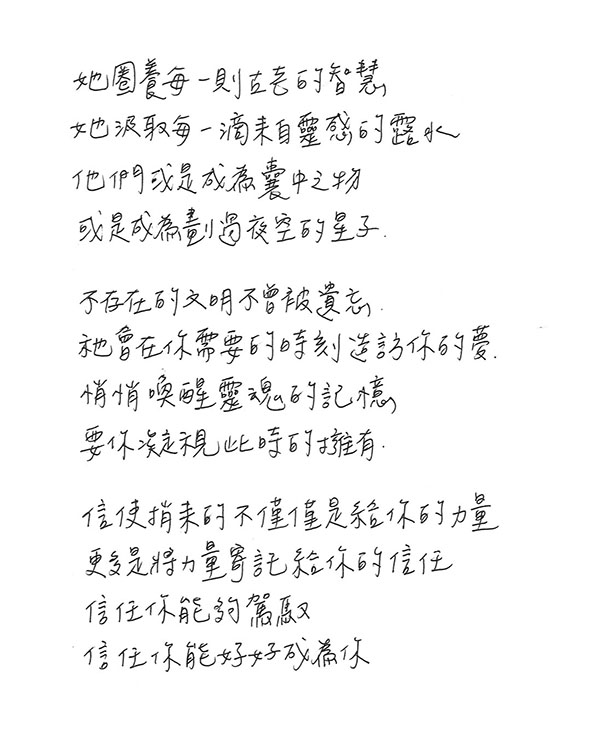 她圈養每一則古老的智慧
她汲取每一滴來自靈感的露水
他們或是成為囊中之物
或是成為劃過夜空的星子.
不存在的文明不曾被遺忘.
祂會在你需要的時刻造訪你的夢.
悄悄喚醒靈魂的記憶
要你凝視此時的擁有.
信使捎來的不僅僅是給你的力量
更多是將力量寄託給你的信任
信任你能夠駕馭
信任你能好好成為你